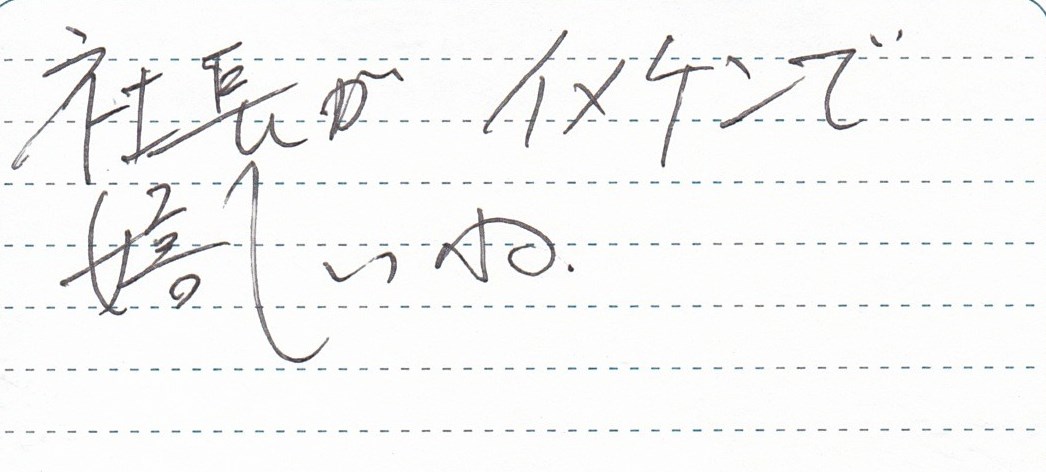 社長が イメケンで
嬉しいね.